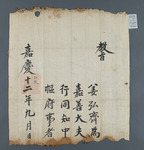 教旨
姜弘齊爲
嘉善大夫
行同知中
樞府事者
嘉慶十二年九月日